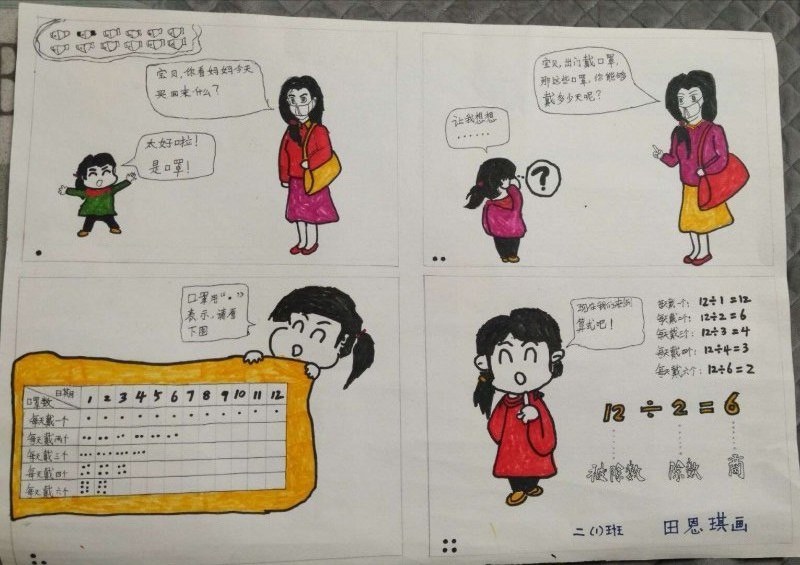 宝贝，你看妈妈今天
买回来什么？
太好啦！
是口罩！
宝贝，出门戴口罩，
那这些口罩，你能够
戴多少天呢？
让我想想
......
?
口罩用“•”
表示，请看
下图
日期
口罩数
1 2 3 4 5 6 7 8 9 10 11 12
每天戴一个
每天戴两个
每天戴三个
每天戴四个
每天戴六个
现在我们来列
算式吧！
每戴一个： 12÷1=12
每天戴2个： 12÷2=6
每天戴三个： 12÷3=4
每天戴四个： 12÷4=3
每天戴六个： 12÷6=2
12 ÷ 2 = 6
被除数 除数 商
二（1）班 田恩琪画